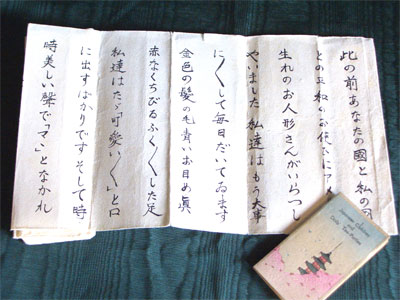 此の前あなたの國と私の
との
のお使ひにア
生れのお人形さんがいらつし
やいました 私達はもう大事
に〱して毎日だいてゐます
金色の髪の毛青いお目め眞
赤なくちびるふく〱した足
私達はたゞ可愛い〱と口
に出すばかりですそして時
時美しい聲で「マヽ」となかれ
Japanese
and
Tea-Parties